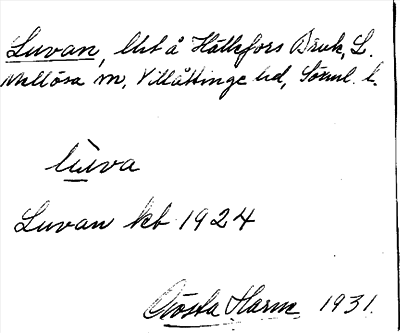 Luvan, lht å Hällefors Bruk, L.
Mellösa sn, Villåttinge hd, Sörml. l.
lu̇va
Luvan kb 1924
Gösta Harne 1931.